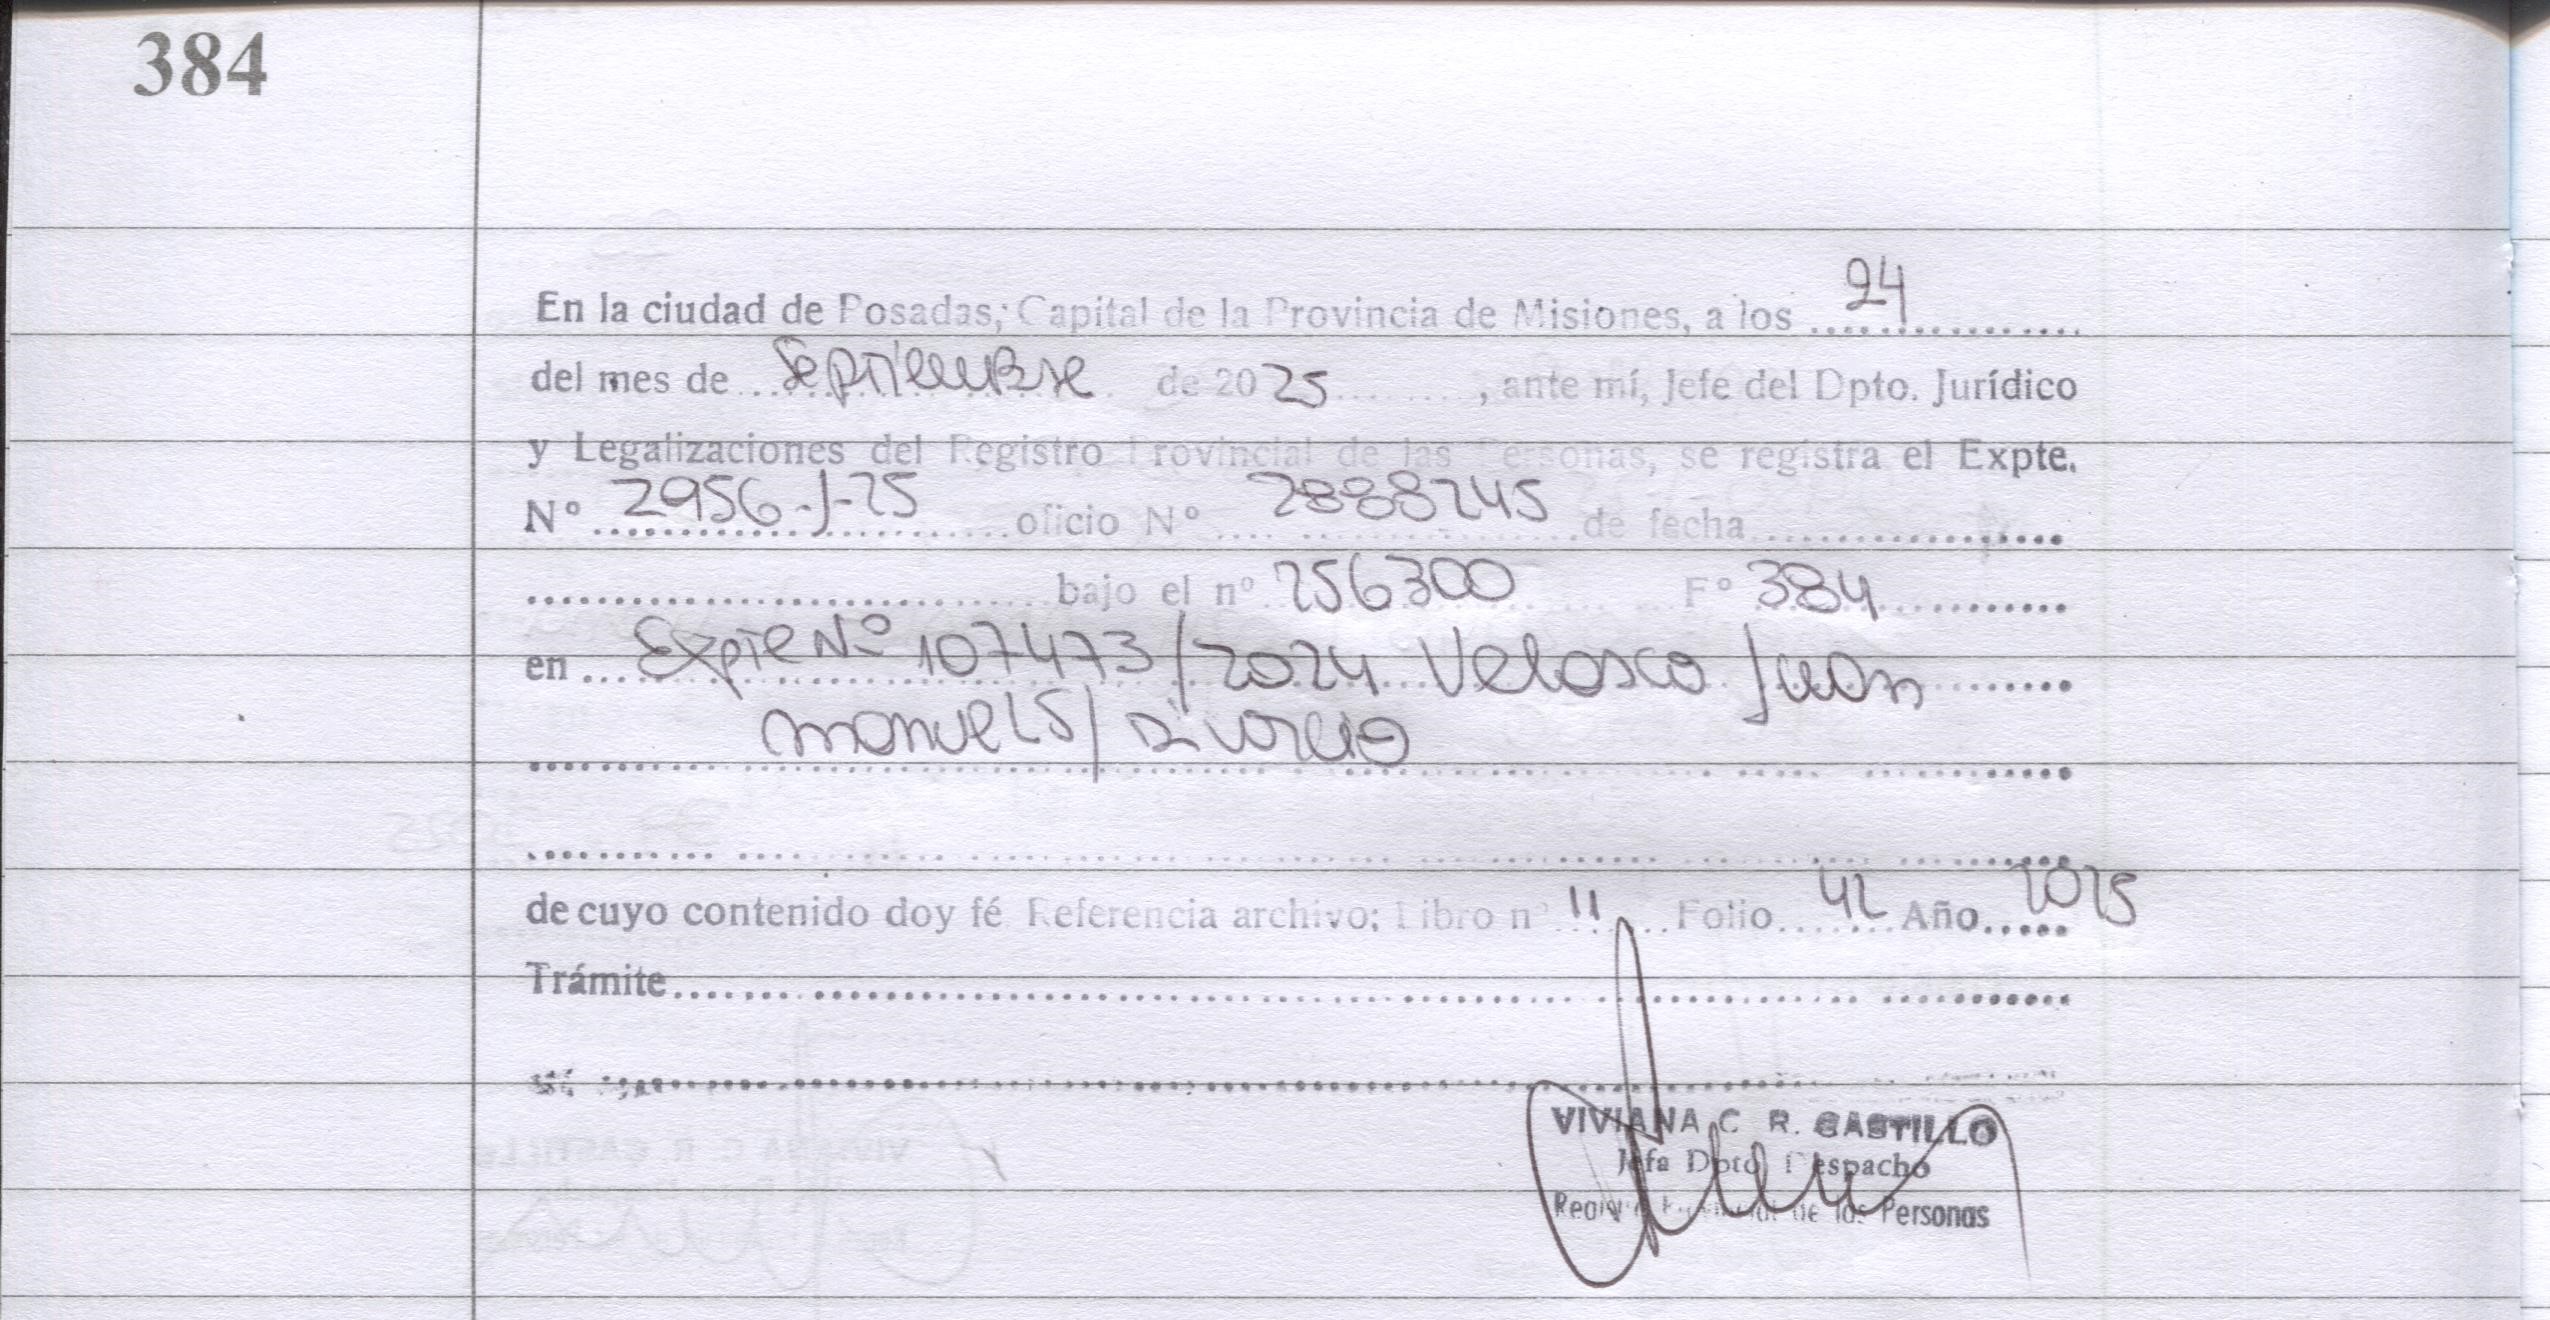 384
En la ciudad de Posadas, Capital de la Provincia de Misiones, a los 24
del mes de Septiembre de 2025, ante mí, Jefe del Dpto. Jurídico
y Legalizaciones del Registro Provincial de las Personas, se registra el Expte.
Nº 2956-J-25 oficio Nº 2888245 de fecha
bajo el nº 256300 Fº 384
en Expte Nº 107473/2024 Velosco Juan
manuel S/ Divorcio
de cuyo contenido doy fé Referencia archivo: Libro nº 11 Folio 42 Año 2025
Trámite
VIVIANA C. R. CASTILLO
Jefa Dpto. Despacho
Registro Provincial de las Personas